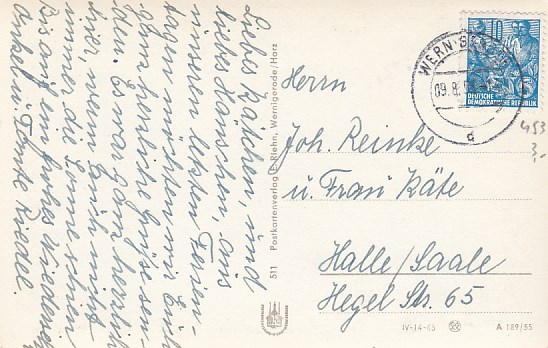 Liebes Kätchen, und
liebes Hänschen, aus
unseren letzten Ferien-
tag möchten wir Euch
ganz herzliche Grüße sen-
den. Es war ganz herrlich
hier, wenn auch nicht
immer die Sonne schien.
Bis auf ein frohes Wiedersehn
Onkel u. Tante Riedel.
511 Postkartenverlag E. Riehn, Wernigerode/Harz
WERNIGERODE
09.8.
d
10
5
DEUTSCHE
DEMOKRATISCHE REPUBLIK
453
Herrn
Joh. Reinke
u. Frau Käte
Halle/Saale
Hegel Str. 65
IV-14-45
A 189/55